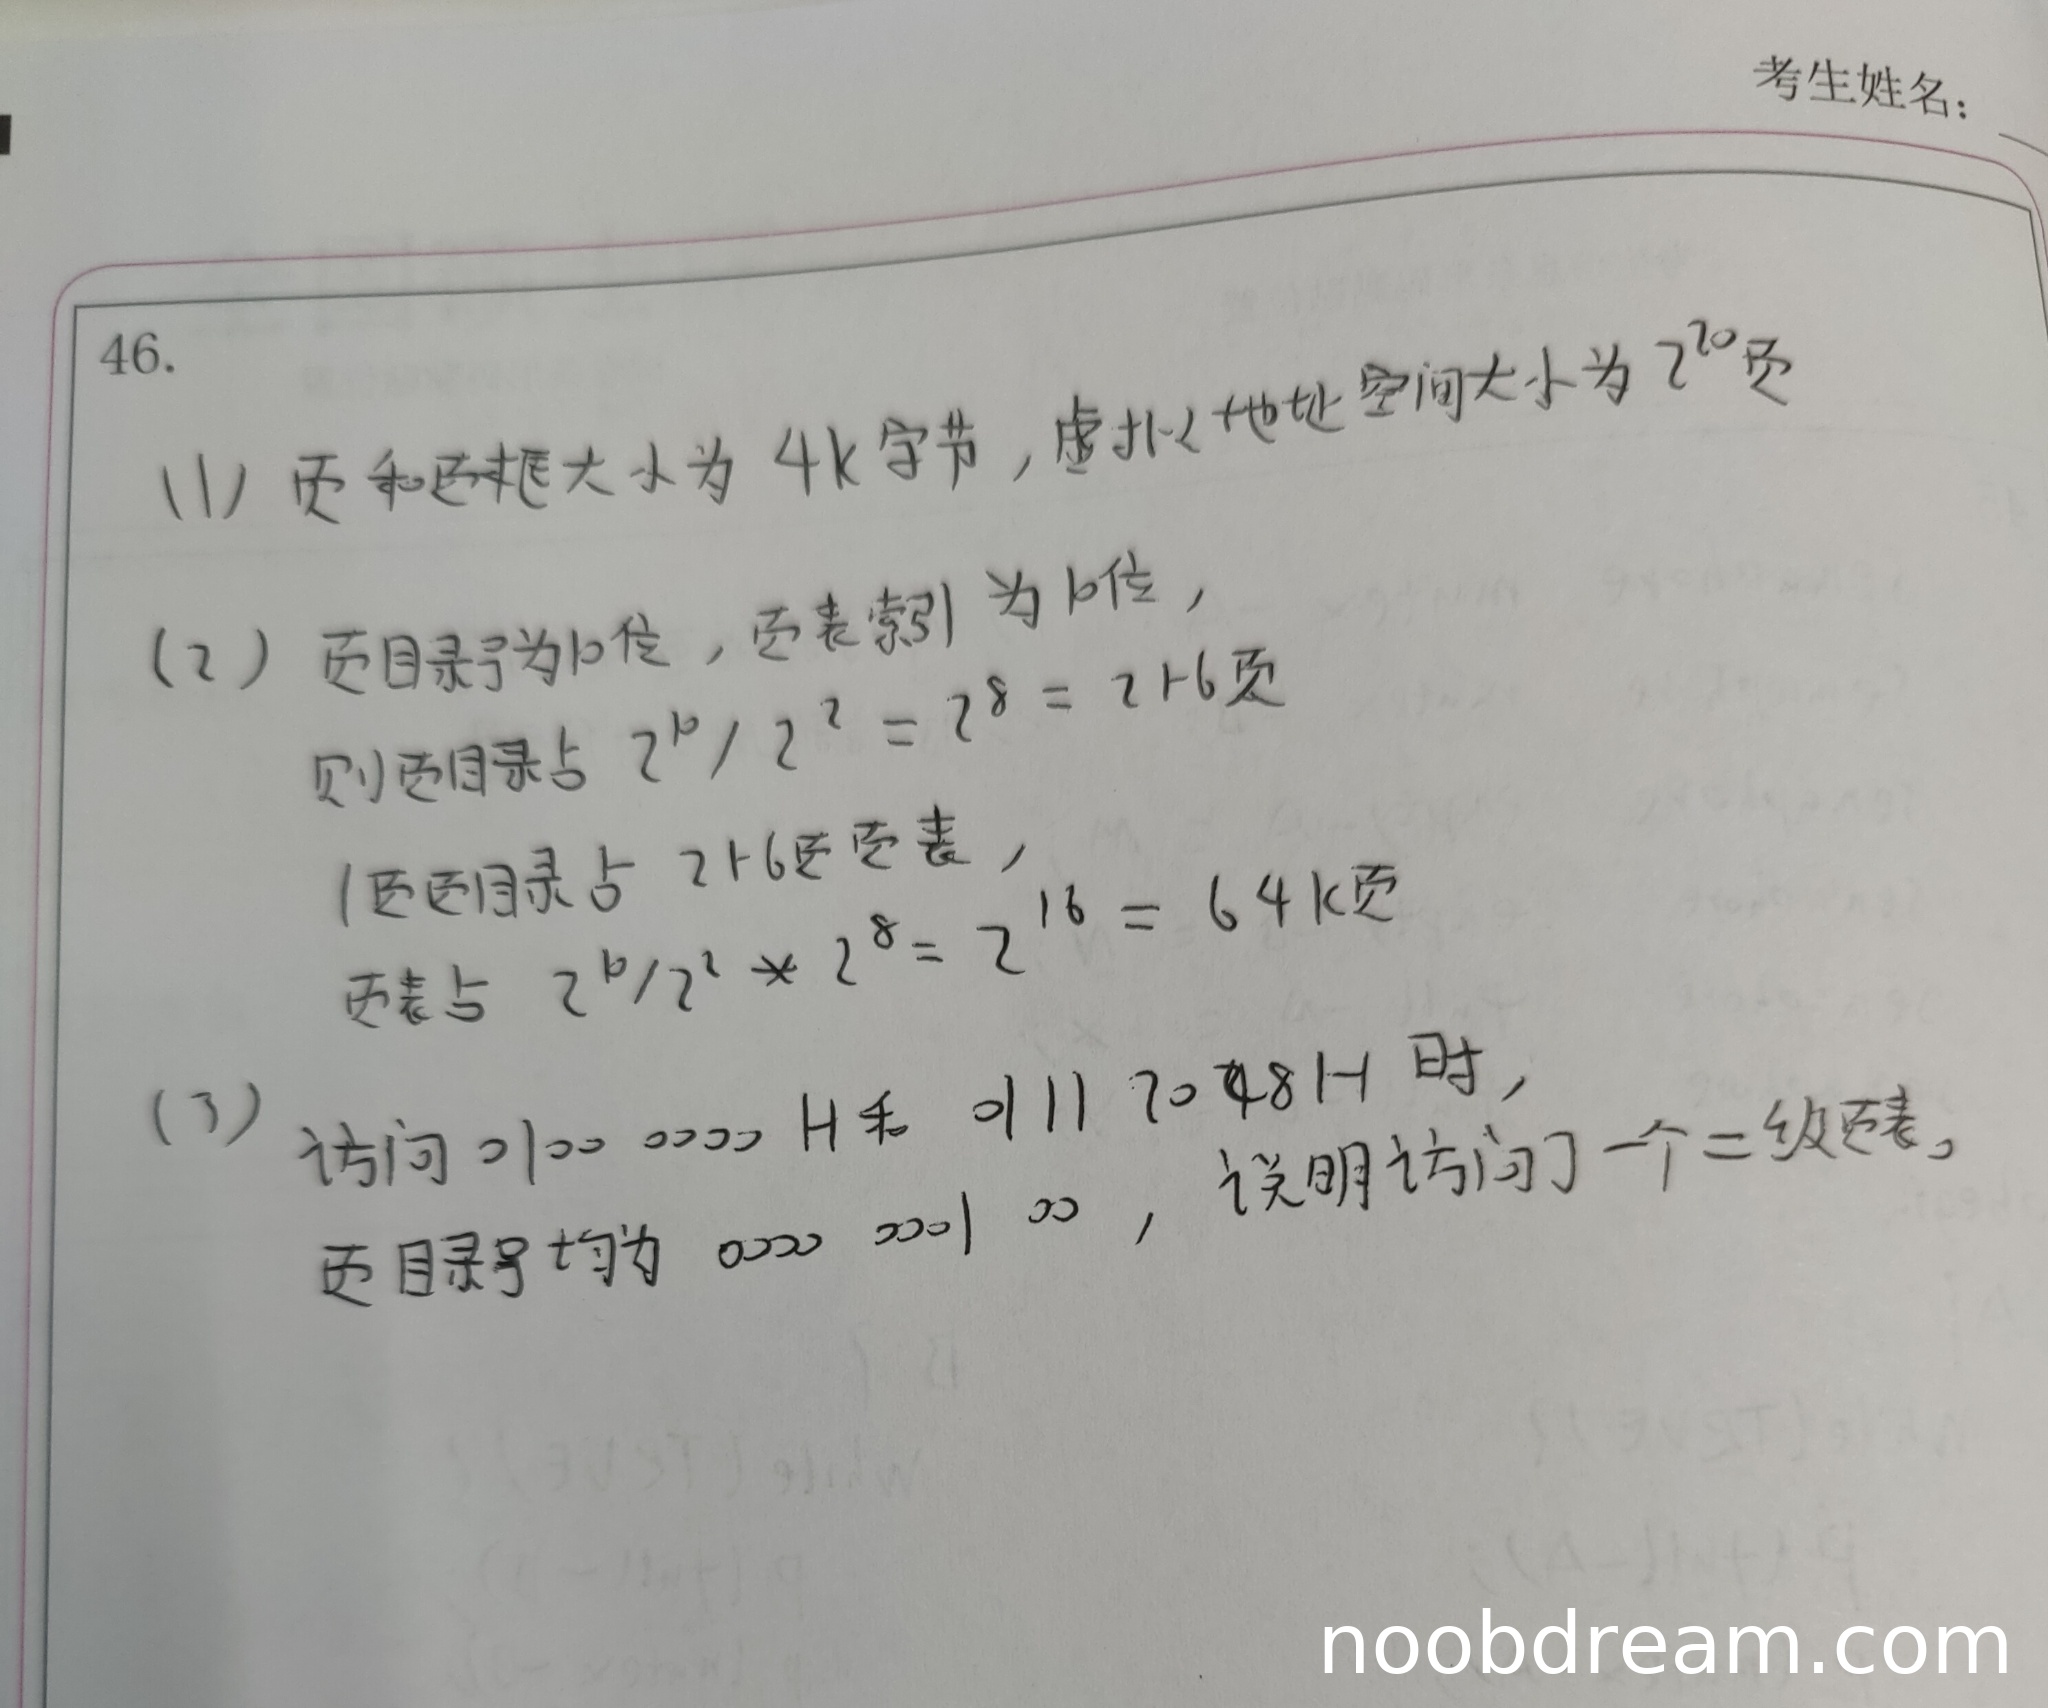 考生姓名：
46.
(1) 页和页框大小为 4k字节，虚拟地址空间大小为 2^20页
(2) 页目录号为10位，页表索引为10位，
则页目录占 2^10/2^2 = 2^8 = 256页
1页页目录占 256页页表，
页表占 2^10/2^2 * 2^8 = 2^16 = 64k页
(3) 访问 0100 0000 H和 0111 2048H 时，
页目录号均为 0000 0001 00，说明访问了一个二级页表。
noobdream.com